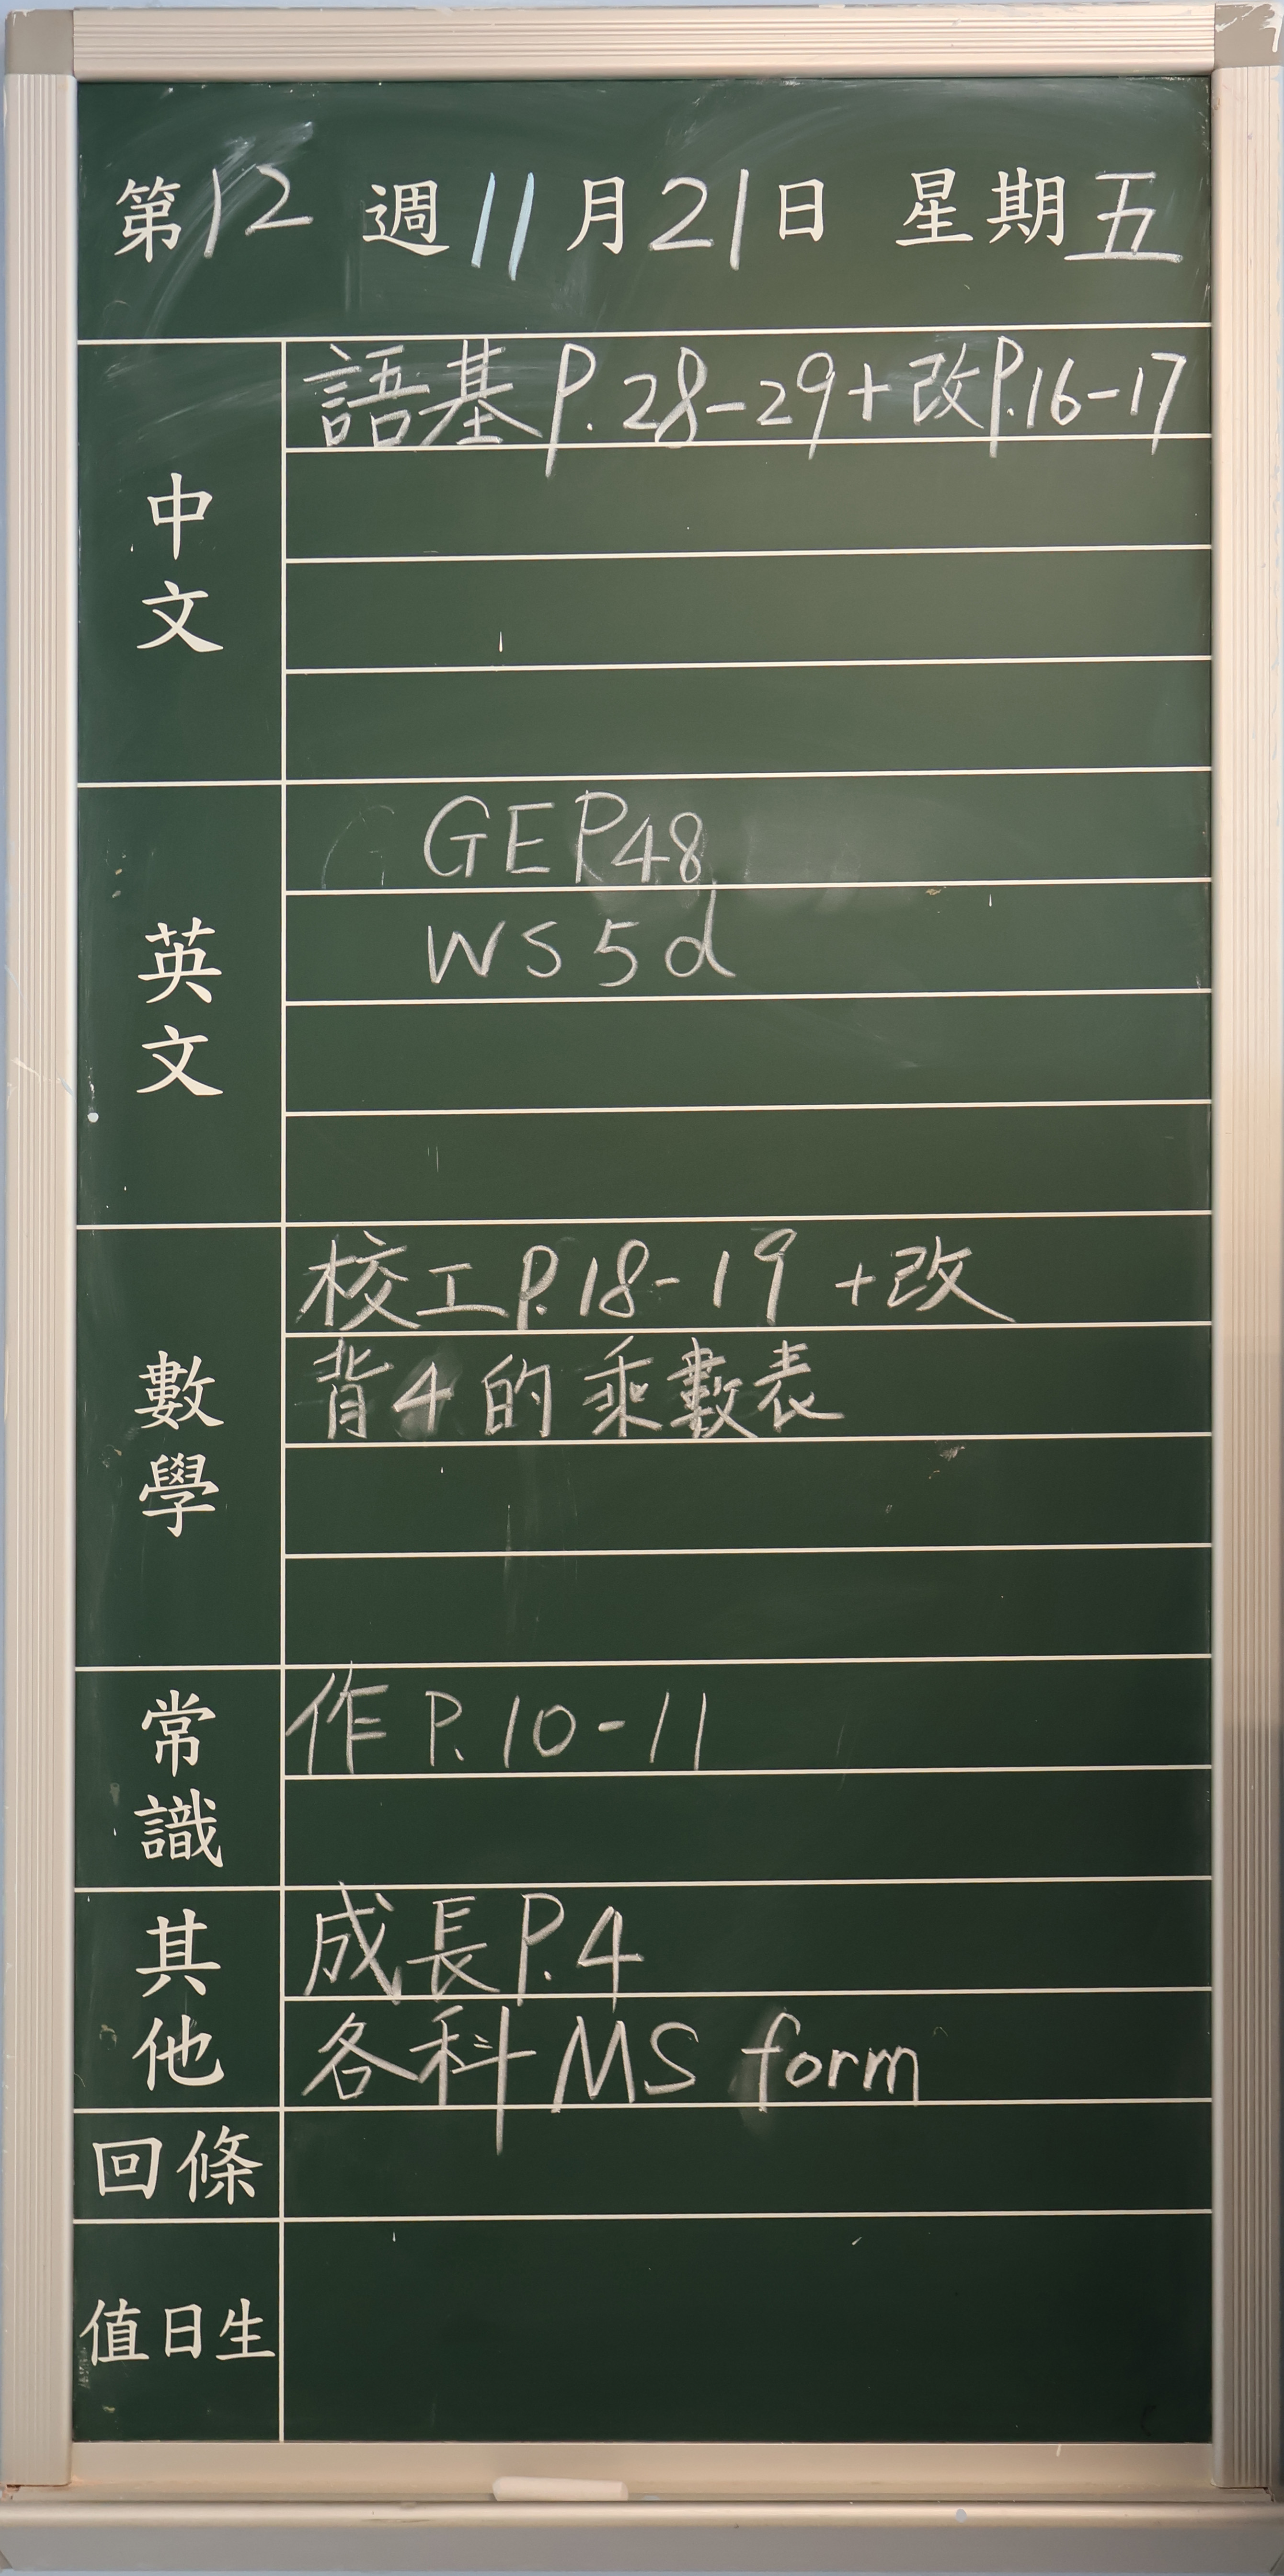 第12 週11月21日 星期五
中文
語基P.28-29+改P.16-17
英文
GE P48
WS 5d
數學
校工P.18-19 +改
背4的乘數表
常識
作 P.10-11
其他
成長P.4
各科MS form
回條
值日生